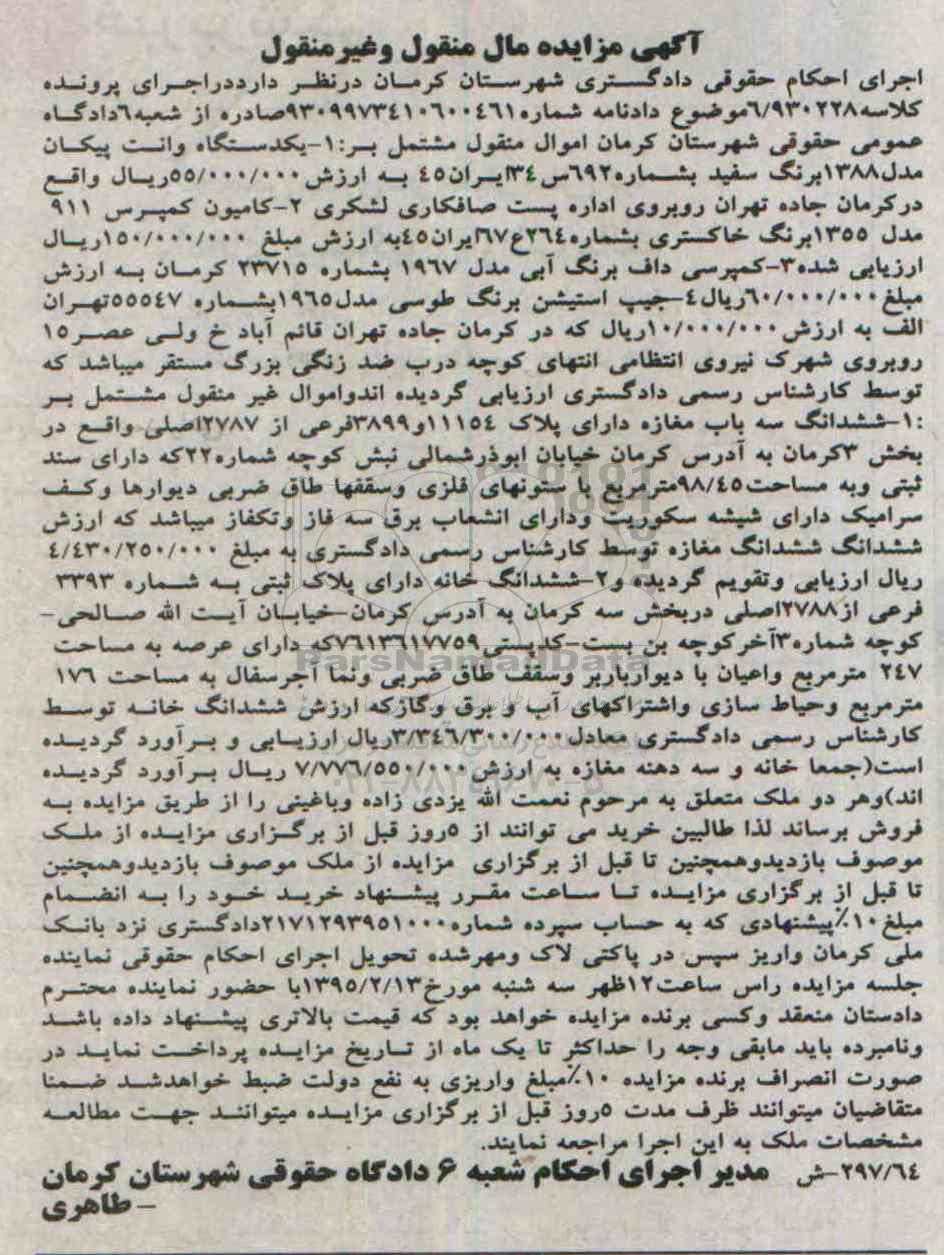 آگهی مزایده مال منقول وغیرمنقول
اجرای احکام حقوقی دادگستری شهرستان کرمان درنظر دارددراجرای پرونده
کلاسه۶/۹۳۰۲۲۸موضوع دادنامه شماره۹۳۰۹۹۷۳٤۱۰٦۰۰٤٦۱صادره از شعبه٦دادگاه
عمومی حقوقی شهرستان کرمان اموال منقول مشتمل بر:۱-یکدستگاه وانت پیکان
مدل۱۳۸۸برنگ سفید بشماره٦۹۲س۳٤ایران٤۵ به ارزش۵۵/۰۰۰/۰۰۰ریال واقع
درکرمان جاده تهران روبروی اداره پست صافکاری لشکری ۲-کامیون کمپرس ۹۱۱
مدل ۱۳۵۵برنگ خاکستری بشماره۲٦٤ع٦۷ایران٤۵به ارزش مبلغ ۱۵۰/۰۰۰/۰۰۰ریال
ارزیابی شده۳-کمپرسی داف برنگ آبی مدل ۱۹٦۷ بشماره ۲۳۷۱۵ کرمان به ارزش
مبلغ٦۰/۰۰۰/۰۰۰ریال٤-جیپ استیشن برنگ طوسی مدل۱۹٦۵بشماره ۵۵۵٤۷تهران
الف به ارزش۱۰/۰۰۰/۰۰۰ریال که در کرمان جاده تهران قائم آباد خ ولی عصر۱۵
روبروی شهرک نیروی انتظامی انتهای کوچه درب ضد زنگی بزرگ مستقر میباشد که
توسط کارشناس رسمی دادگستری ارزیابی گردیده اندواموال غیر منقول مشتمل بر
:۱-ششدانگ سه باب مغازه دارای پلاک ۱۱۱۵٤و۳۸۹۹فرعی از ۲۷۸۷اصلی واقع در
بخش ۳کرمان به آدرس کرمان خیابان ابوذرشمالی نبش کوچه شماره۲۲که دارای سند
ثبتی وبه مساحت۹۸/٤۵مترمربع با ستونهای فلزی وسقفها طاق ضربی دیوارها وکف
سرامیک دارای شیشه سکوریت ودارای انشعاب برق سه فاز وتکفاز میباشد که ارزش
ششدانگ ششدانگ مغازه توسط کارشناس رسمی دادگستری به مبلغ ٤/٤۳۰/۲۵۰/۰۰۰
ریال ارزیابی وتقویم گردیده و۲-ششدانگ خانه دارای پلاک ثبتی به شماره ۳۳۹۳
فرعی از۲۷۸۸اصلی دربخش سه کرمان به آدرس کرمان-خیابان آیت الله صالحی-
کوچه شماره۳آخرکوچه بن بست-کدپستی۷٦۱۳٦۱۷۷۵۹که دارای عرصه به مساحت
۲٤۷ مترمربع واعیان با دیوارباربر وسقف طاق ضربی ونما آجرسفال به مساحت ۱۷٦
مترمربع وحیاط سازی واشتراکهای آب و برق وگازکه ارزش ششدانگ خانه توسط
کارشناس رسمی دادگستری معادل۳/۳٤٦/۳۰۰/۰۰۰ریال ارزیابی و برآورد گردیده
است(جمعا خانه و سه دهنه مغازه به ارزش۷/۷۷٦/۵۵۰/۰۰۰ ریال برآورد گردیده
اند)وهر دو ملک متعلق به مرحوم نعمت الله یزدی زاده وباغینی را از طریق مزایده به
فروش برساند لذا طالبین خرید می توانند از ۵روز قبل از برگزاری مزایده از ملک
موصوف بازدیدوهمچنین تا قبل از برگزاری مزایده از ملک موصوف بازدیدوهمچنین
تا قبل از برگزاری مزایده تا ساعت مقرر پیشنهاد خرید خود را به انضمام
مبلغ۱۰٪پیشنهادی که به حساب سپرده شماره۲۱۷۱۲۹۳۹۵۱۰۰۰دادگستری نزد بانک
ملی کرمان واریز سپس در پاکتی لاک ومهرشده تحویل اجرای احکام حقوقی نماینده
جلسه مزایده راس ساعت۱۲ظهر سه شنبه مورخ۱۳۹۵/۲/۱۳با حضور نماینده محترم
دادستان منعقد وکسی برنده مزایده خواهد بود که قیمت بالاتری پیشنهاد داده باشد
ونامبرده باید مابقی وجه را حداکثر تا یک ماه از تاریخ مزایده پرداخت نماید در
صورت انصراف برنده مزایده ۱۰٪مبلغ واریزی به نفع دولت ضبط خواهدشد ضمنا
متقاضیان میتوانند ظرف مدت ۵روز قبل از برگزاری مزایده میتوانند جهت مطالعه
مشخصات ملک به این اجرا مراجعه نمایند.
۲۹۷/٦٤-ش مدیر اجرای احکام شعبه ۶ دادگاه حقوقی شهرستان کرمان
-طاهری
ParsNamadData